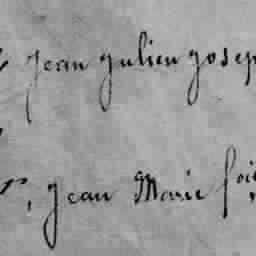 jean julien josep
jean Marie